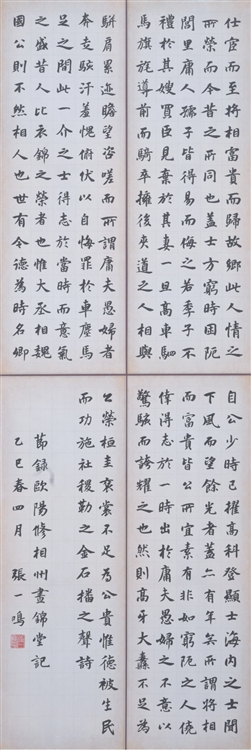 仕宦而至將相富貴而歸故鄉此人情之
所榮而今昔之所同也蓋士方窮時困阨
閭里庸人孺子皆得易而侮之若季子不
禮於其嫂買臣見棄於其妻一旦高車駟
馬旗旄導前而騎卒擁後夾道之人相與
駢肩累迹瞻望咨嗟而所謂庸夫愚婦者
奔走駭汗羞愧俯伏以自悔罪於車塵馬
足之間此一介之士得志於當時而意氣
之盛昔人比衣錦之榮者也惟大丞相魏
國公則不然相人也世有令德為時名卿
自公少時已擢高科登顯士海內之士聞
下風而望餘光者蓋亦有年矣所謂將相
而富貴皆公所宜素有非如窮阨之人僥
倖得志於一時出於庸夫愚婦之不意以
驚駭而誇耀之也然則高牙大纛不足為
公榮桓圭袞裳不足為公貴惟德被生民
而功施社稷勒之金石播之聲詩
節錄歐陽修相州晝錦堂記
乙巳春四月 張一鳴